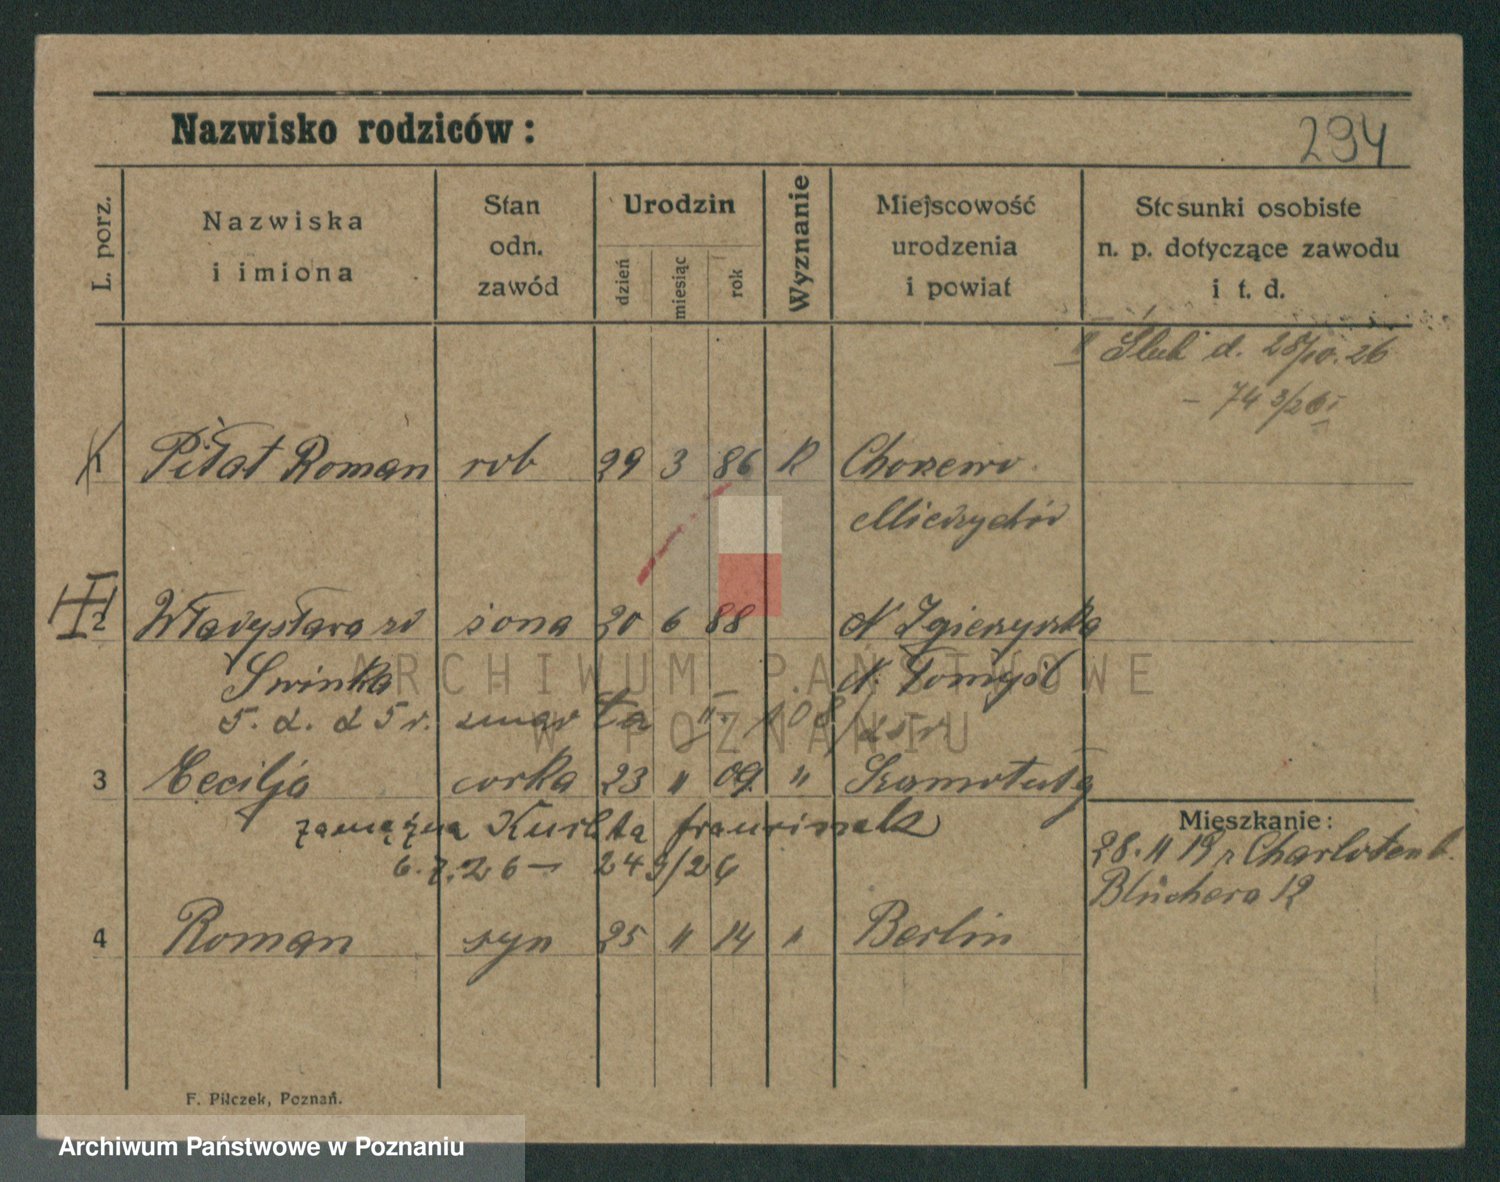 Nazwisko rodziców:
294
L. porz.
Nazwiska
i imiona
Stan
odn.
zawód
Urodzin
dzień
miesiąc
rok
Wyznanie
Miejscowość
urodzenia
i powiat
Stosunki osobiste
n. p. dotyczące zawodu
i t. d.
II Ślub d. 28/10. 26
1 Piłat Roman rob 29 3 86 R
Międzychód
2 Władysława żona 20 6 88
Swinka N. Tomyśl
3 Cecilja corka 23 " 09 " Szamotuły
zamężna
6.7.26 — 243/26
Mieszkanie:
28. 11 19 z Charlotenb.
Blüchera 12
4 Roman syn 25 " 14 " Berlin
F. Pilczek, Poznań.
ARCHIWUM PAŃSTWOWE
W POZNANIU
Archiwum Państwowe w Poznaniu